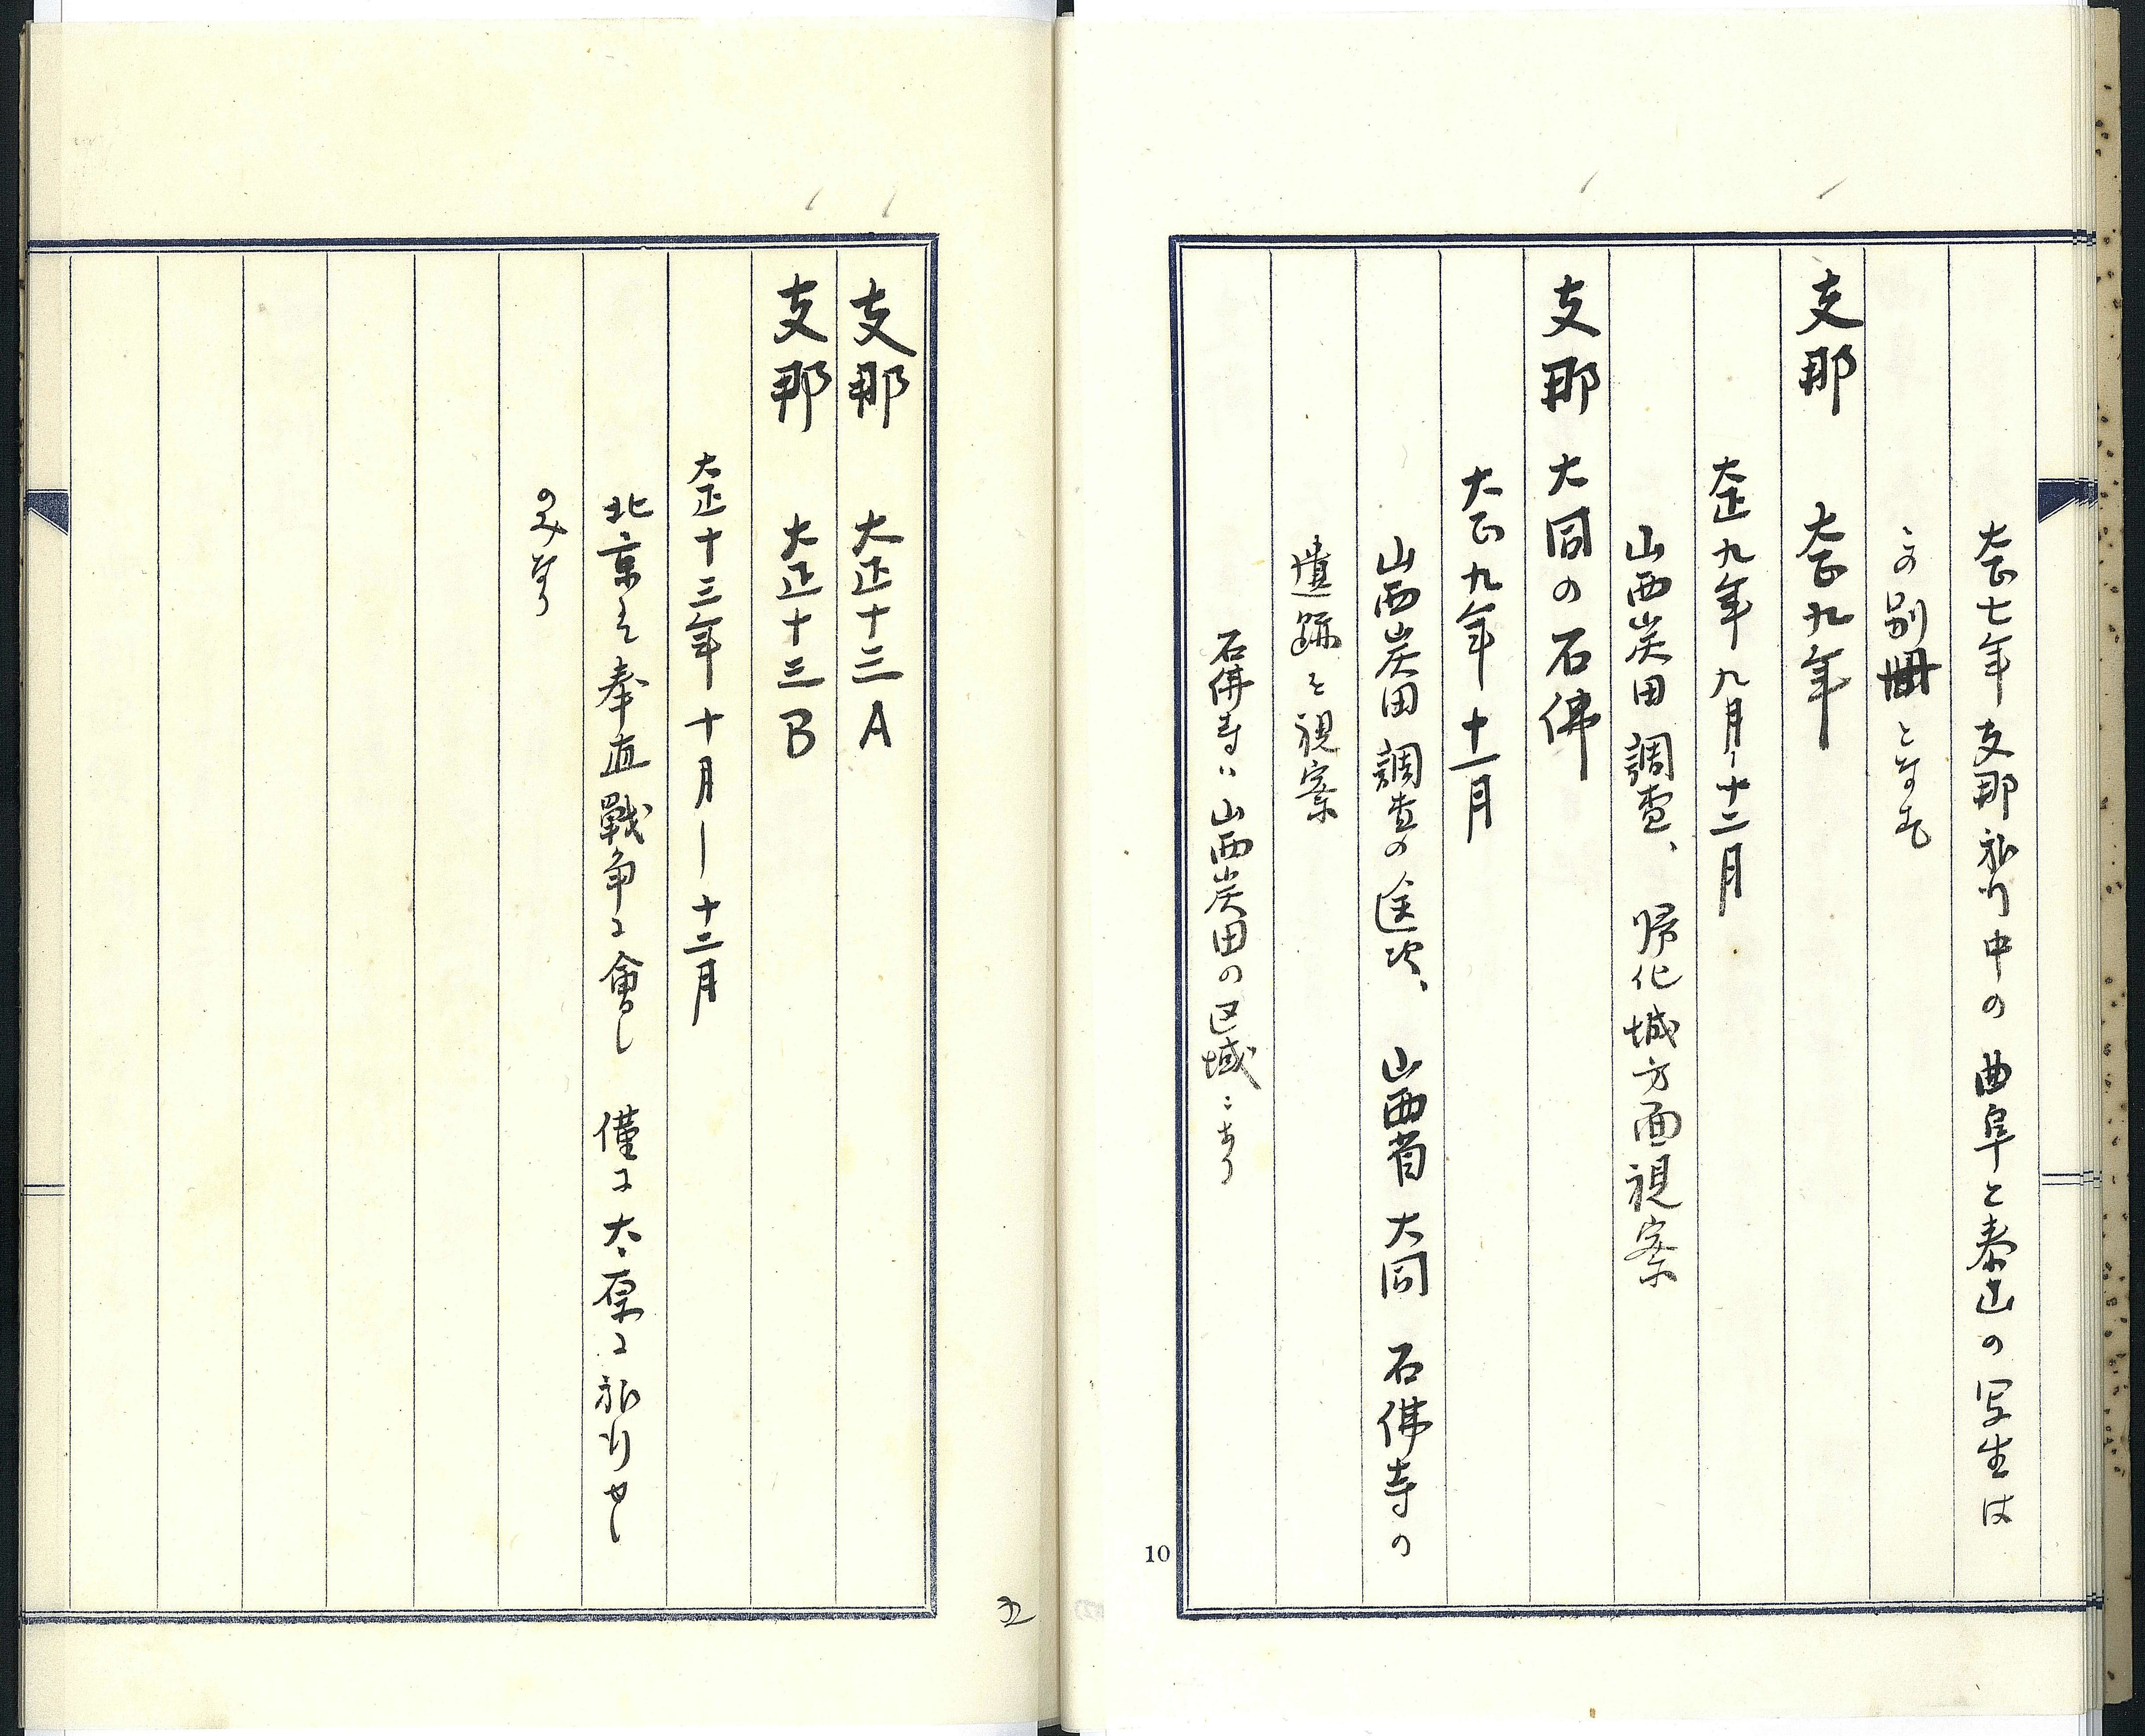 大正七年支那旅行中の曲阜と泰山の写生は
この別冊となす
支那 大正九年
大正九年九月-十二月
山西炭田調査、帰化城方面視察
支那 大同の石佛
大正九年十一月
山西炭田調査の途次、山西省大同石佛寺の
遺跡を視察
石佛寺ハ山西炭田の区域ニあり
10
支那 大正十三A
支那 大正十三B
大正十三年十月-十二月
北京にて奉直戰争に會し 僅に太原に旅行せし
のみなり
五